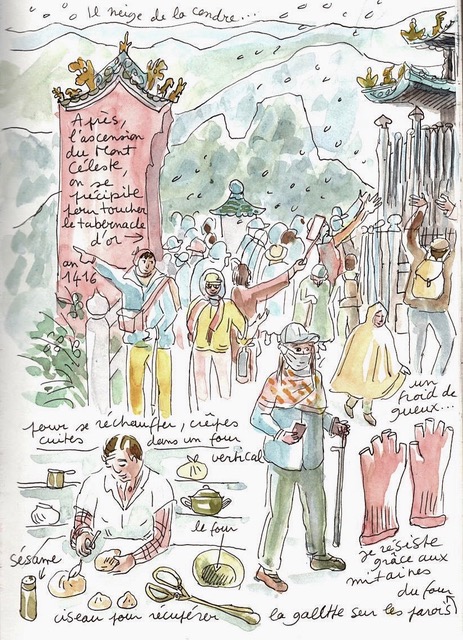 Il neige de la cendre...
Après,
l'ascension
du Mont
Céleste,
on se
précipite
pour toucher
le tabernacle
d'or →
an
1416
un
froid de
gueux...
pour se réchauffer, crêpes
cuites dans un four
vertical
le four
je résiste
grâce aux
mitaines
sésame
ciseau pour récupérer la galette sur les parois
du four